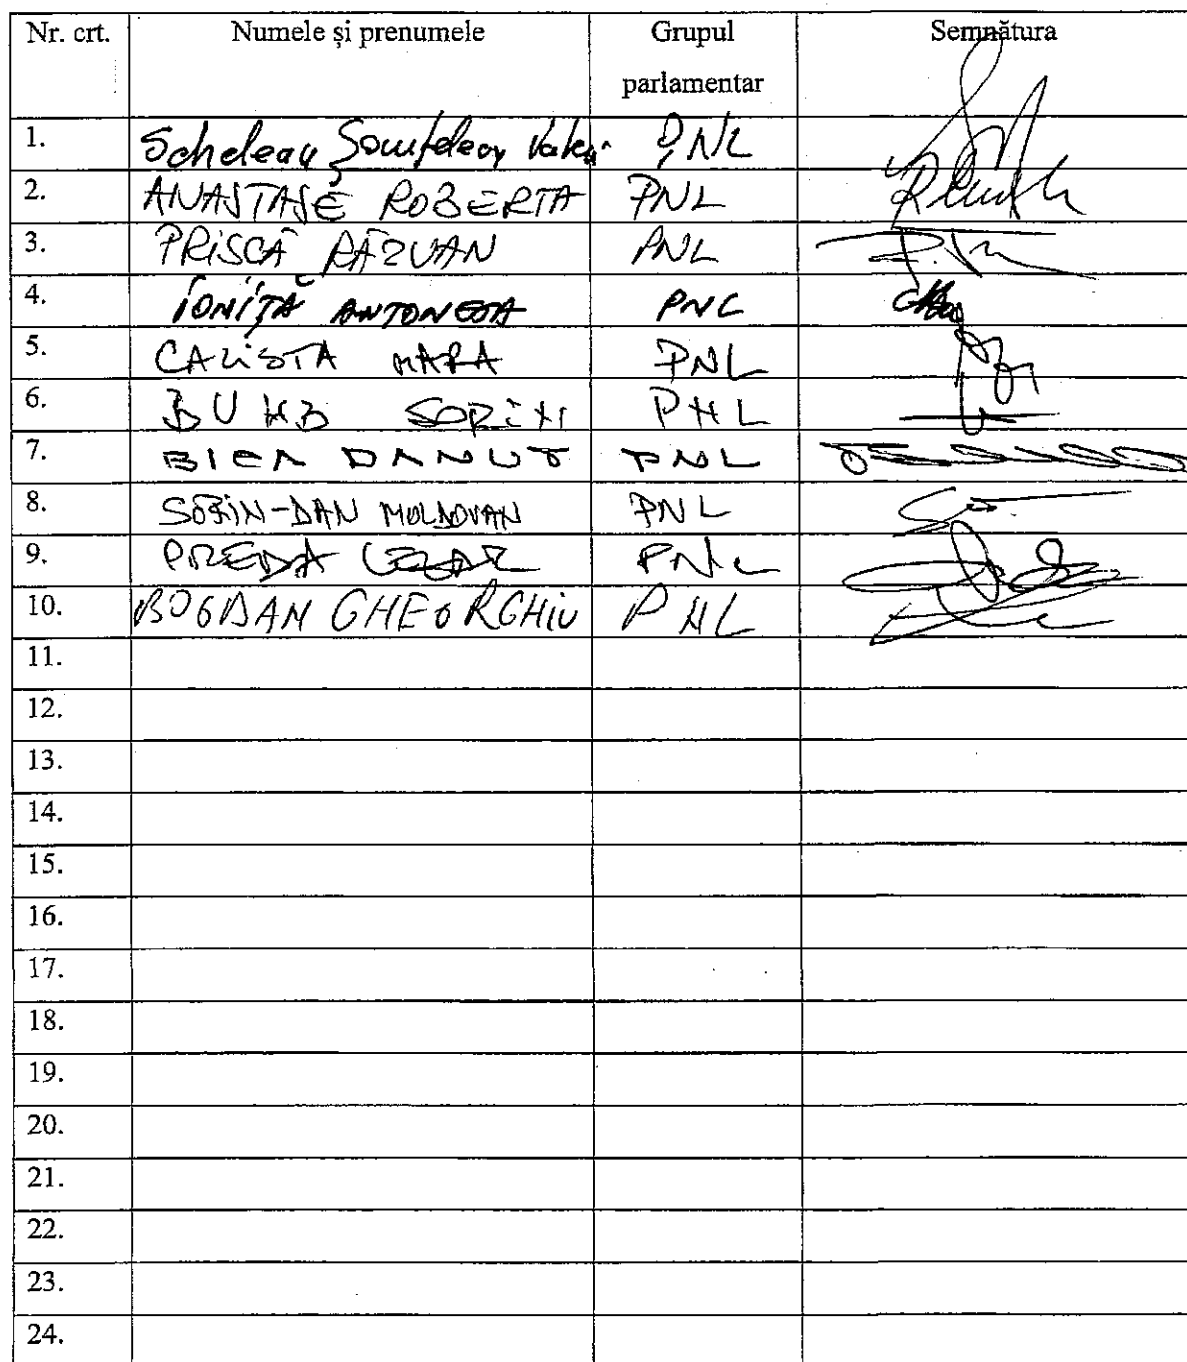 Nr. crt. Numele și prenumele Grupul parlamentar Semnătura
1. PNL
2. ANASTASE ROBERTA PNL
3. PRISCĂ RĂZVAN PNL
4. IONIȚĂ ANTONETA PNL
5. CALISTA MARA PNL
6. BUMB SORIN PNL
7. BICA DANUT PNL
8. SORIN-DAN MOLDOVAN PNL
9. PREDA CEZAR PNL
10. BOGDAN GHEORGHIU PNL
11.
12.
13.
14.
15.
16.
17.
18.
19.
20.
21.
22.
23.
24.